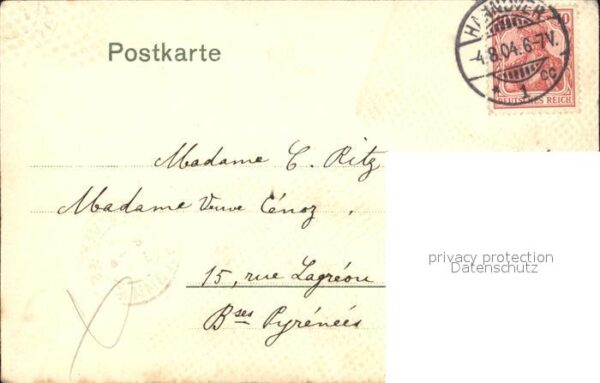 Postkarte
HANNOVER
4.8.04.6-7V.
* 1 cc
DEUTSCHES REICH
Madame C. Ritz
Madame Veuve Cénoz.
15, rue Lagréou
Bses Pyrénées
privacy protection
Datenschutz